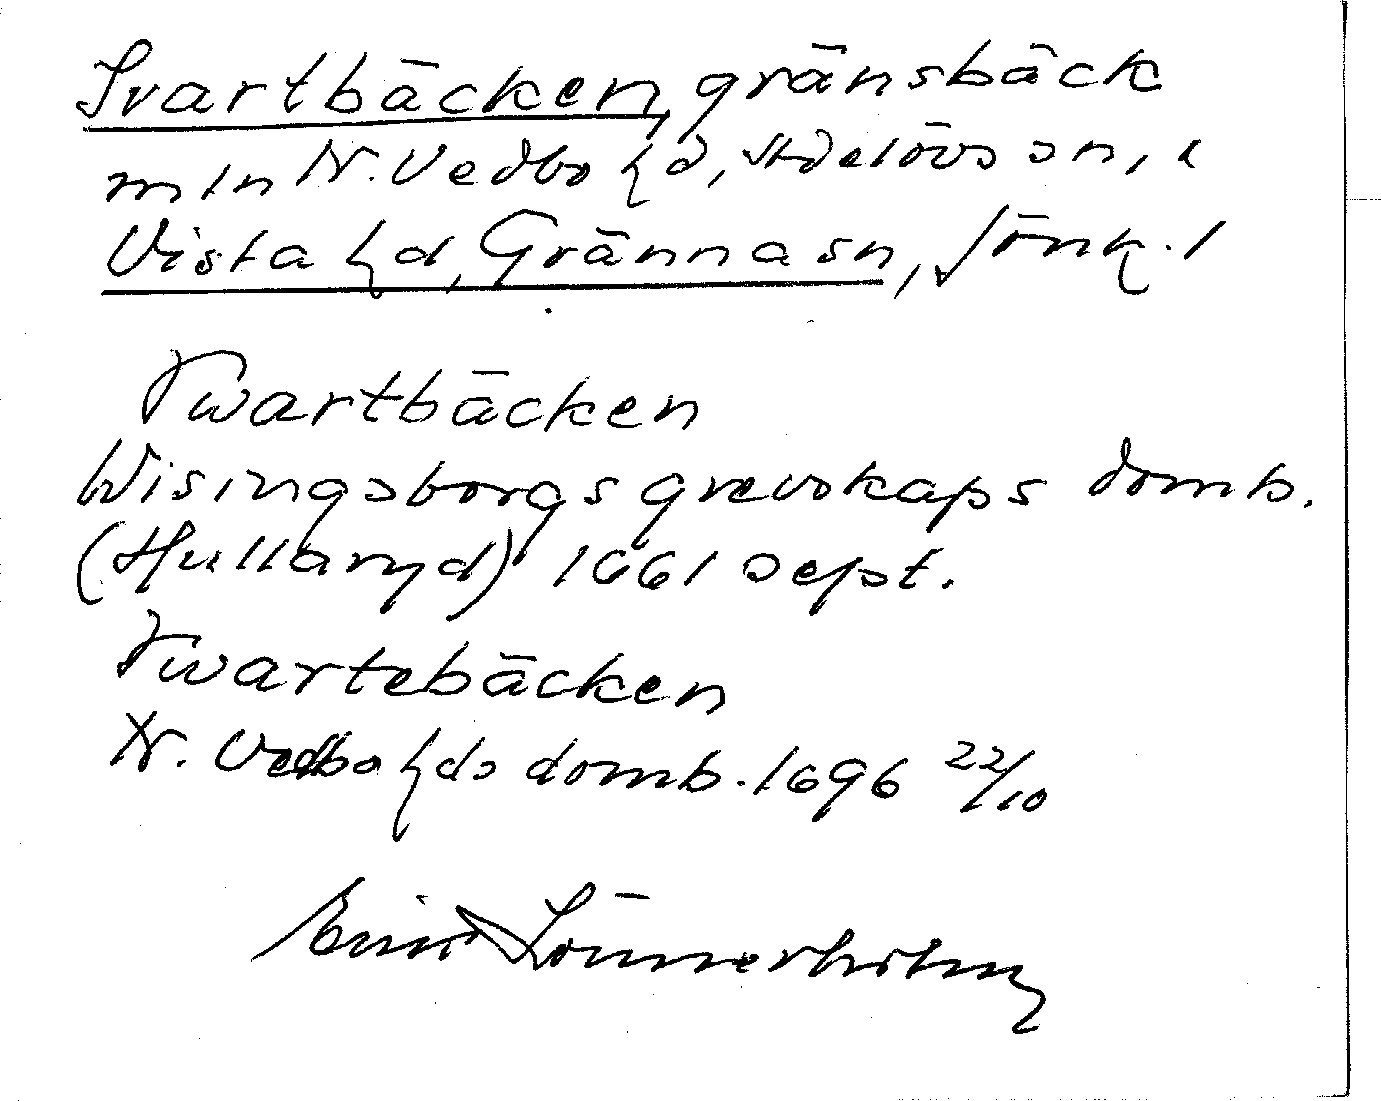 Svartbäcken, gränsbäck
mln N. Vedbo hd, Adelövs sn, i
Vista hd, Gränna sn, Jönk. l
Swartbäcken
Wisingsborgs grevskaps domb.
(Hullaryd) 1661 sept.
Swartebäcken
N. Vedbo hds domb. 1696 22/10